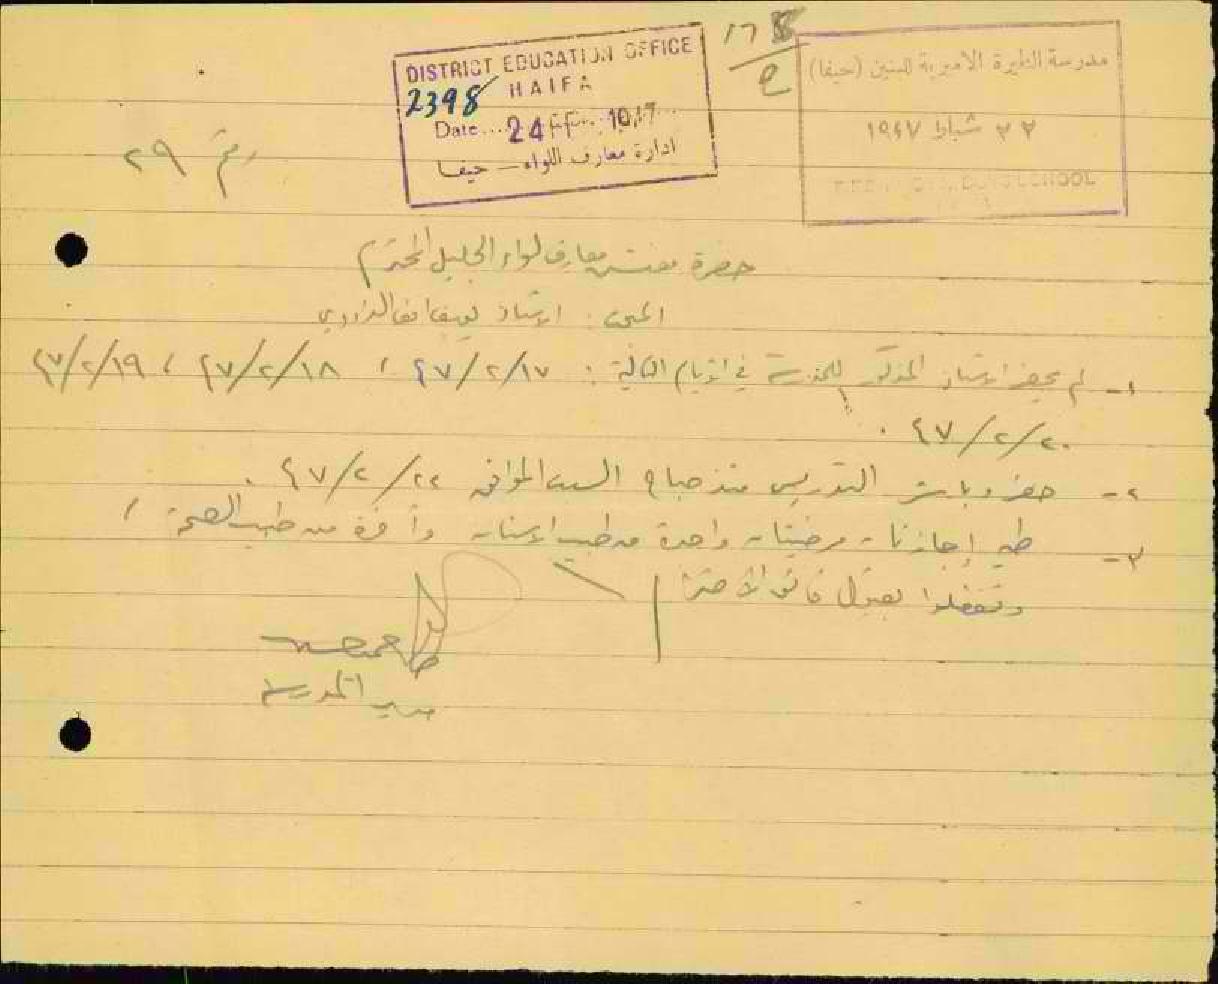 DISTRICT EDUCATION OFFICE
HAIFA
2398
Date... 24 FEB 1947
ادارة معارف اللواء — حيفا
مدرسة الطيرة الاميرية للبنين (حيفا)
٢٢ شباط ١٩٤٧
BOYS SCHOOL
رقم ٢٩
حضرة مفتش معارف لواء الجليل المحترم
المبحث : الاستاذ
١- لم يحضر الاستاذ المذكور للمدرسة في الايام التالية : ٤٧/٢/١٧ ، ٤٧/٢/١٨ ، ٤٧/٢/١٩
٤٧/٢/٢٠ .
٢- حضر وباشر التدريس منذ صباح السبت الموافق ٤٧/٢/٢٢ .
٣- طيه إجازتان مرضيتان واحدة من طبيب الاسنان وأخرى من طبيب الصحة ،
وتفضلوا بقبول فائق الاحترام
مدير المدرسة